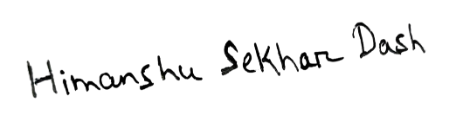 Himanshu Sekhar Dash